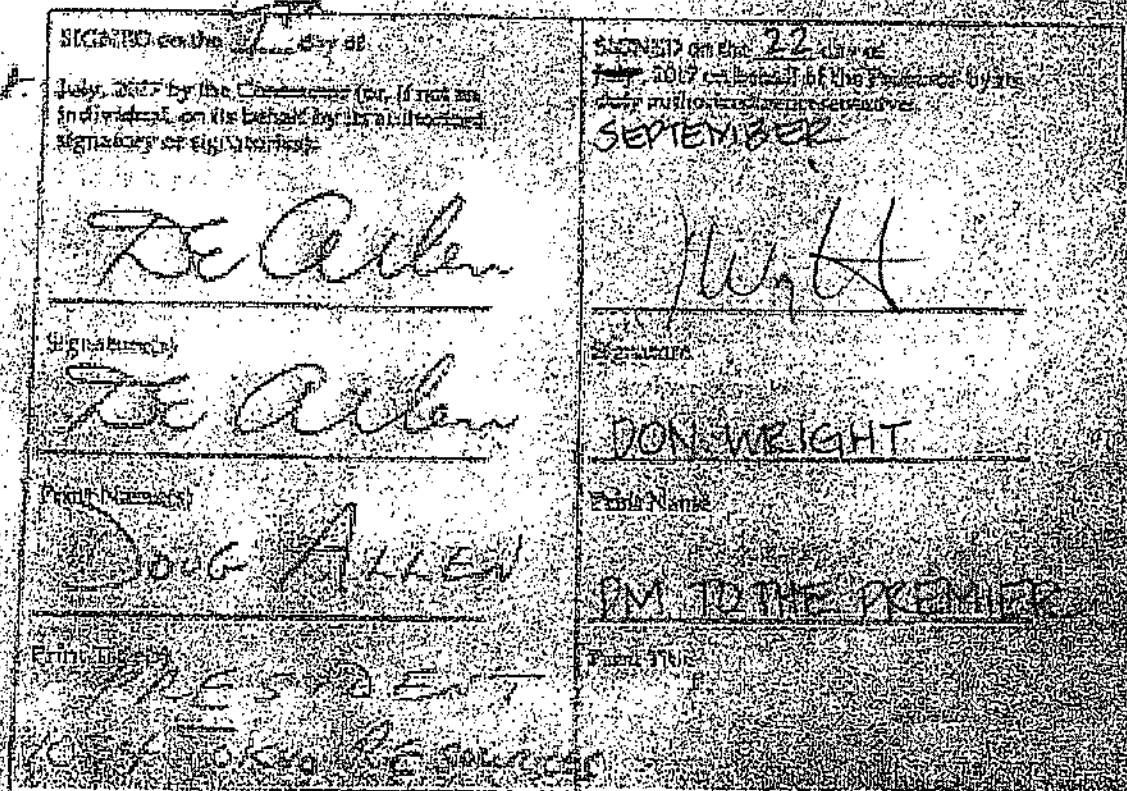 SIGNED on the day of
July, 2017 by the Contractor (or, if not an
individual, on its behalf by its authorized
signatory or signatories):
DE Allen
Signature(s)
DE Allen
Print Name(s)
DOUG ALLEN
Print Title(s)
PRESIDENT
SIGNED on the 22 day of
July, 2017 on behalf of the Province by its
duly authorized representative:
SEPTEMBER
Signature
DON WRIGHT
Print Name
DM TO THE PREMIER
Print Title